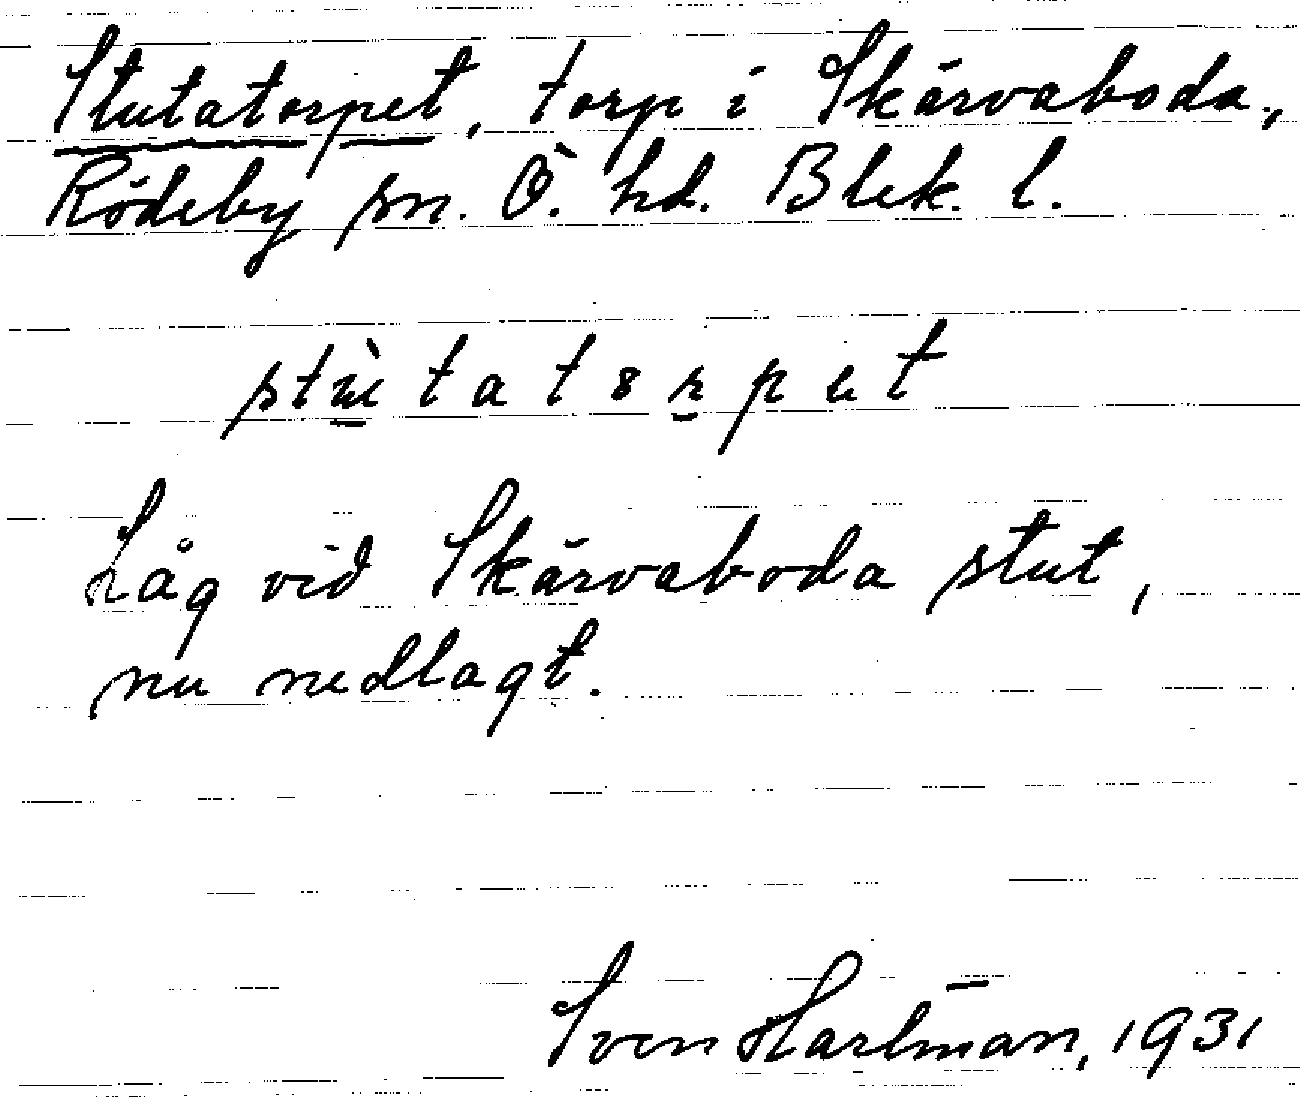 Stutatorpet, torp i Skärvaboda,
Rödeby sn. Ö. hd. Blek. l.
stɯ̀tatɵrpet
Låg vid Skärvaboda stut,
nu nedlagt.
Sven Hartman, 1931